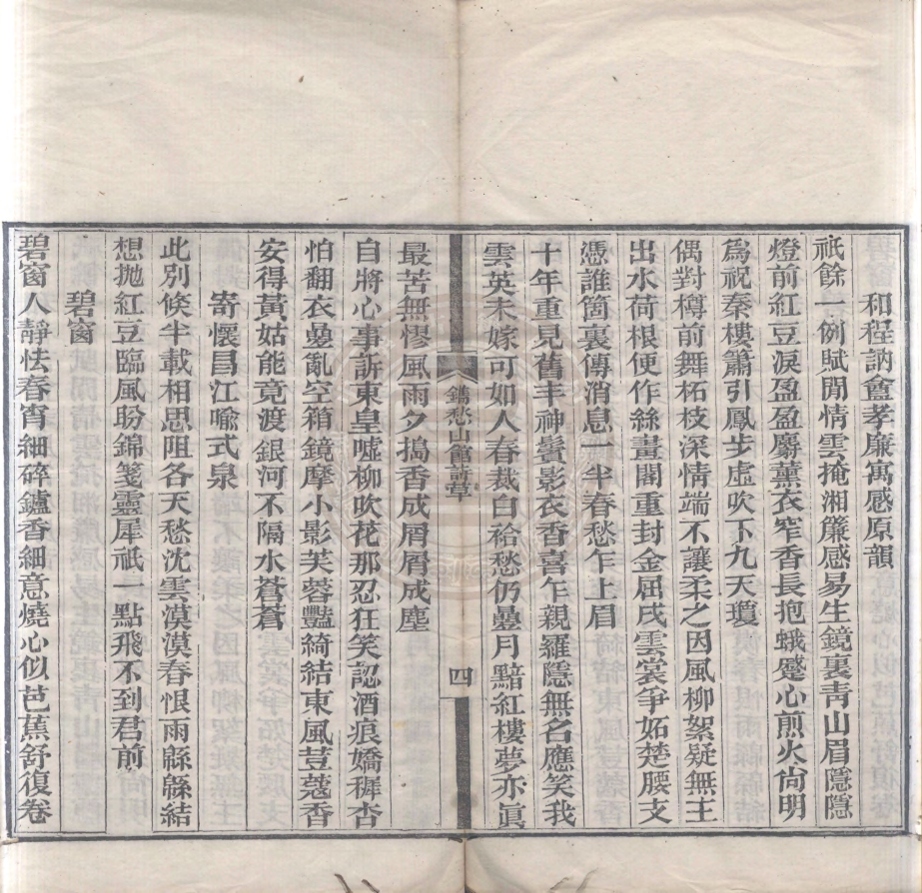 和程訥盦孝廉寓感原韻
祇餘一例賦閒情雲掩湘簾感易生鏡裏靑山眉隱隱
燈前紅豆淚盈盈麝薰衣窄香長抱蛾蹙心煎火尙明
爲祝秦樓簫引鳳步虛吹下九天瓊
偶對樽前舞柘枝深情端不讓柔之因風柳絮疑無主
出水荷根便作絲畫閣重封金屈戌雲裳爭妬楚腰支
憑誰箇裏傳消息一半春愁乍上眉
十年重見舊丰神鬢影衣香喜乍親羅隱無名應笑我
雲英未嫁可如人春裁白袷愁仍疊月黯紅樓夢亦眞
鐫愁山館詩草
四
最苦無憀風雨夕搗香成屑屑成塵
自將心事訴東皇噓柳吹花那忍狂笑認酒痕嬌穉杏
怕翻衣疊亂空箱鏡摩小影芙蓉豔綺結東風荳蔻香
安得黃姑能竟渡銀河不隔水蒼蒼
寄懷昌江喻式泉
此別倏半載相思阻各天愁沈雲漠漠春恨雨緜緜結
想拋紅豆臨風盼錦箋靈犀祇一點飛不到君前
碧窗
碧窗人靜怯春宵細碎鑪香細意燒心似芭蕉舒復卷